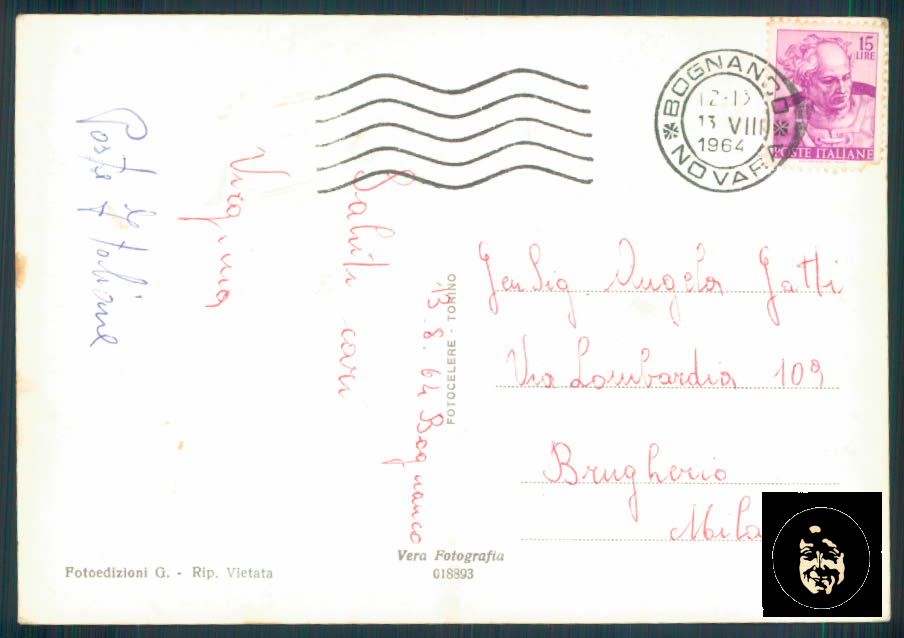 Poste Italiane
Virginia
Saluti cari
13.8.64 Bognanco
FOTOCELERE - TORINO
BOGNANCO
12-13
13 VIII
1964
NOVARA
15
LIRE
POSTE ITALIANE
Gen Sig. Angela Gatti
Via Lombardia 109
Brugherio
Mila
Vera Fotografia
018893
Fotoedizioni G. - Rip. Vietata